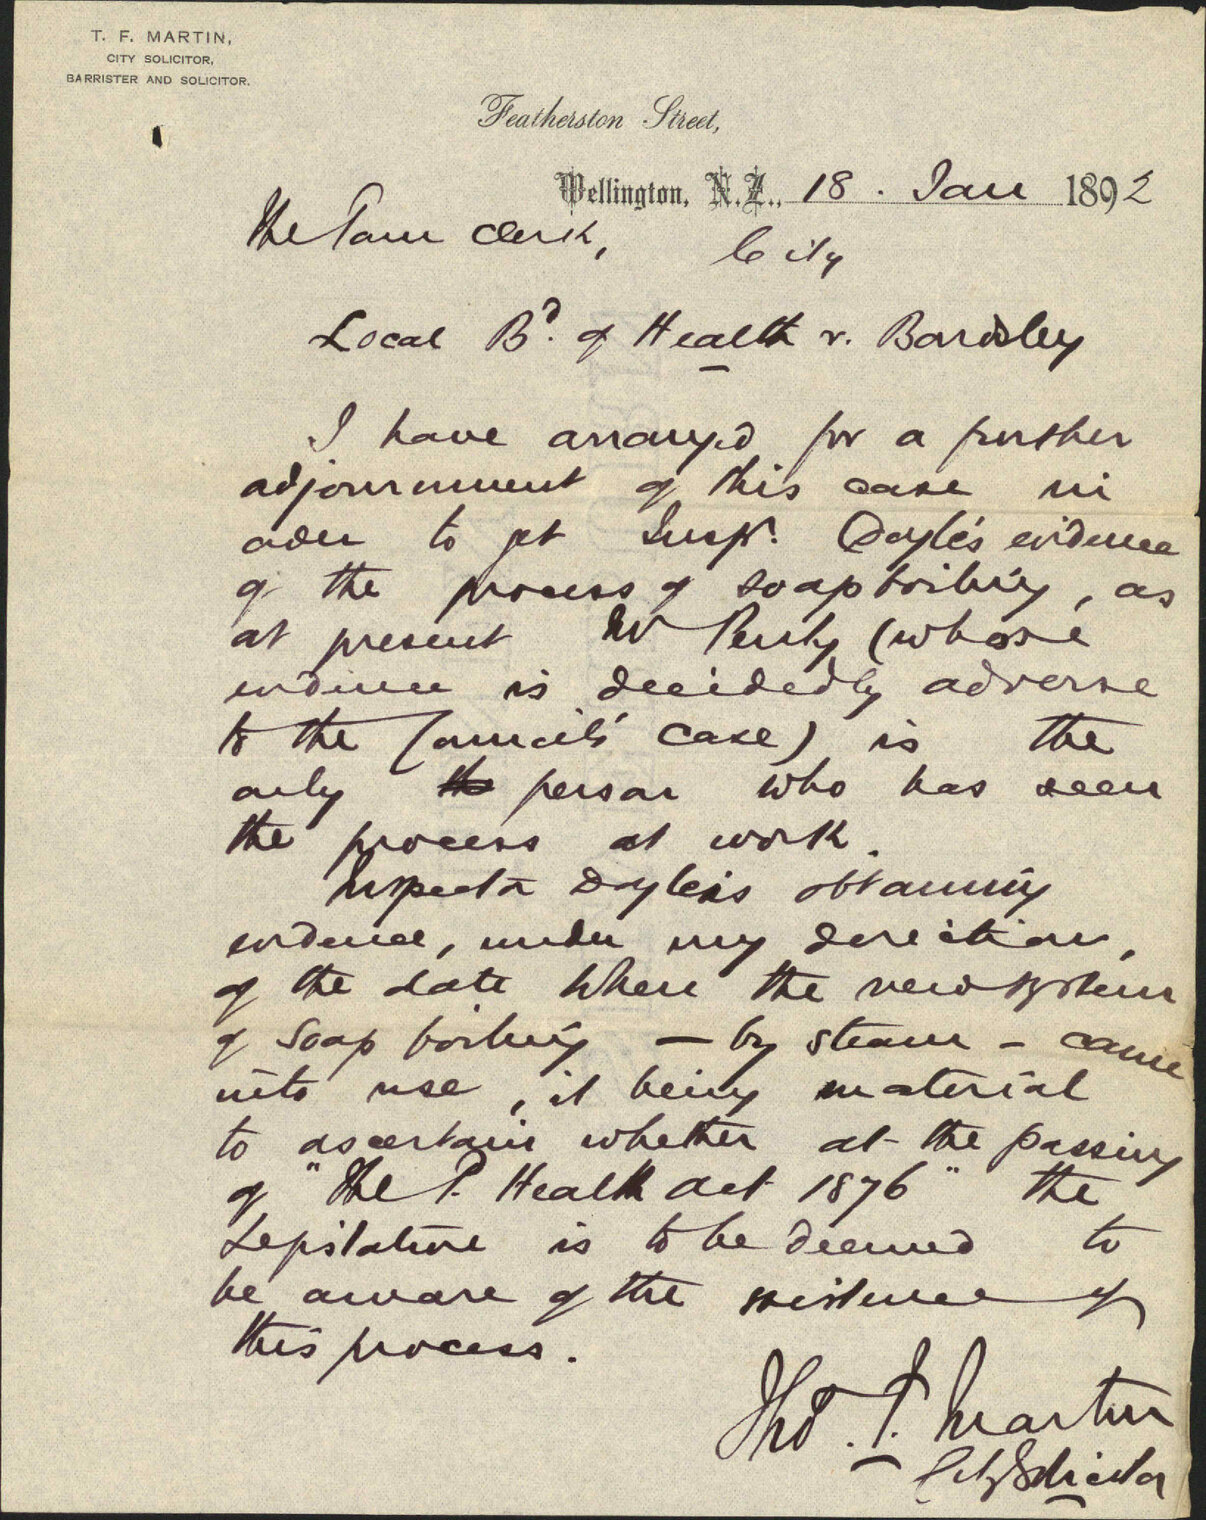 T. F. MARTIN,
CITY SOLICITOR,
BARRISTER AND SOLICITOR.
Featherston Street,
Wellington, N.Z., 18 . Jan 1892
The Town Clerk,
City
Local Bd. of Health v. Bardsley
I have arranged for a further
adjournment of this case in
order to get Inspr. Doyle's evidence
of the process of soap boiling, as
at present Mr (whose
evidence is decidedly adverse
to the Council's case) is the
only the person who has seen
the process at work.
Inspector Doyle is obtaining
evidence, under my direction,
of the date when the new system
of soap boiling — by steam – came
into use, it being material
to ascertain whether at the passing
of "The P. Health Act 1876" the
Legislature is to be deemed to
be aware of the existence of
this process.
Thos. F. Martin
City Solicitor